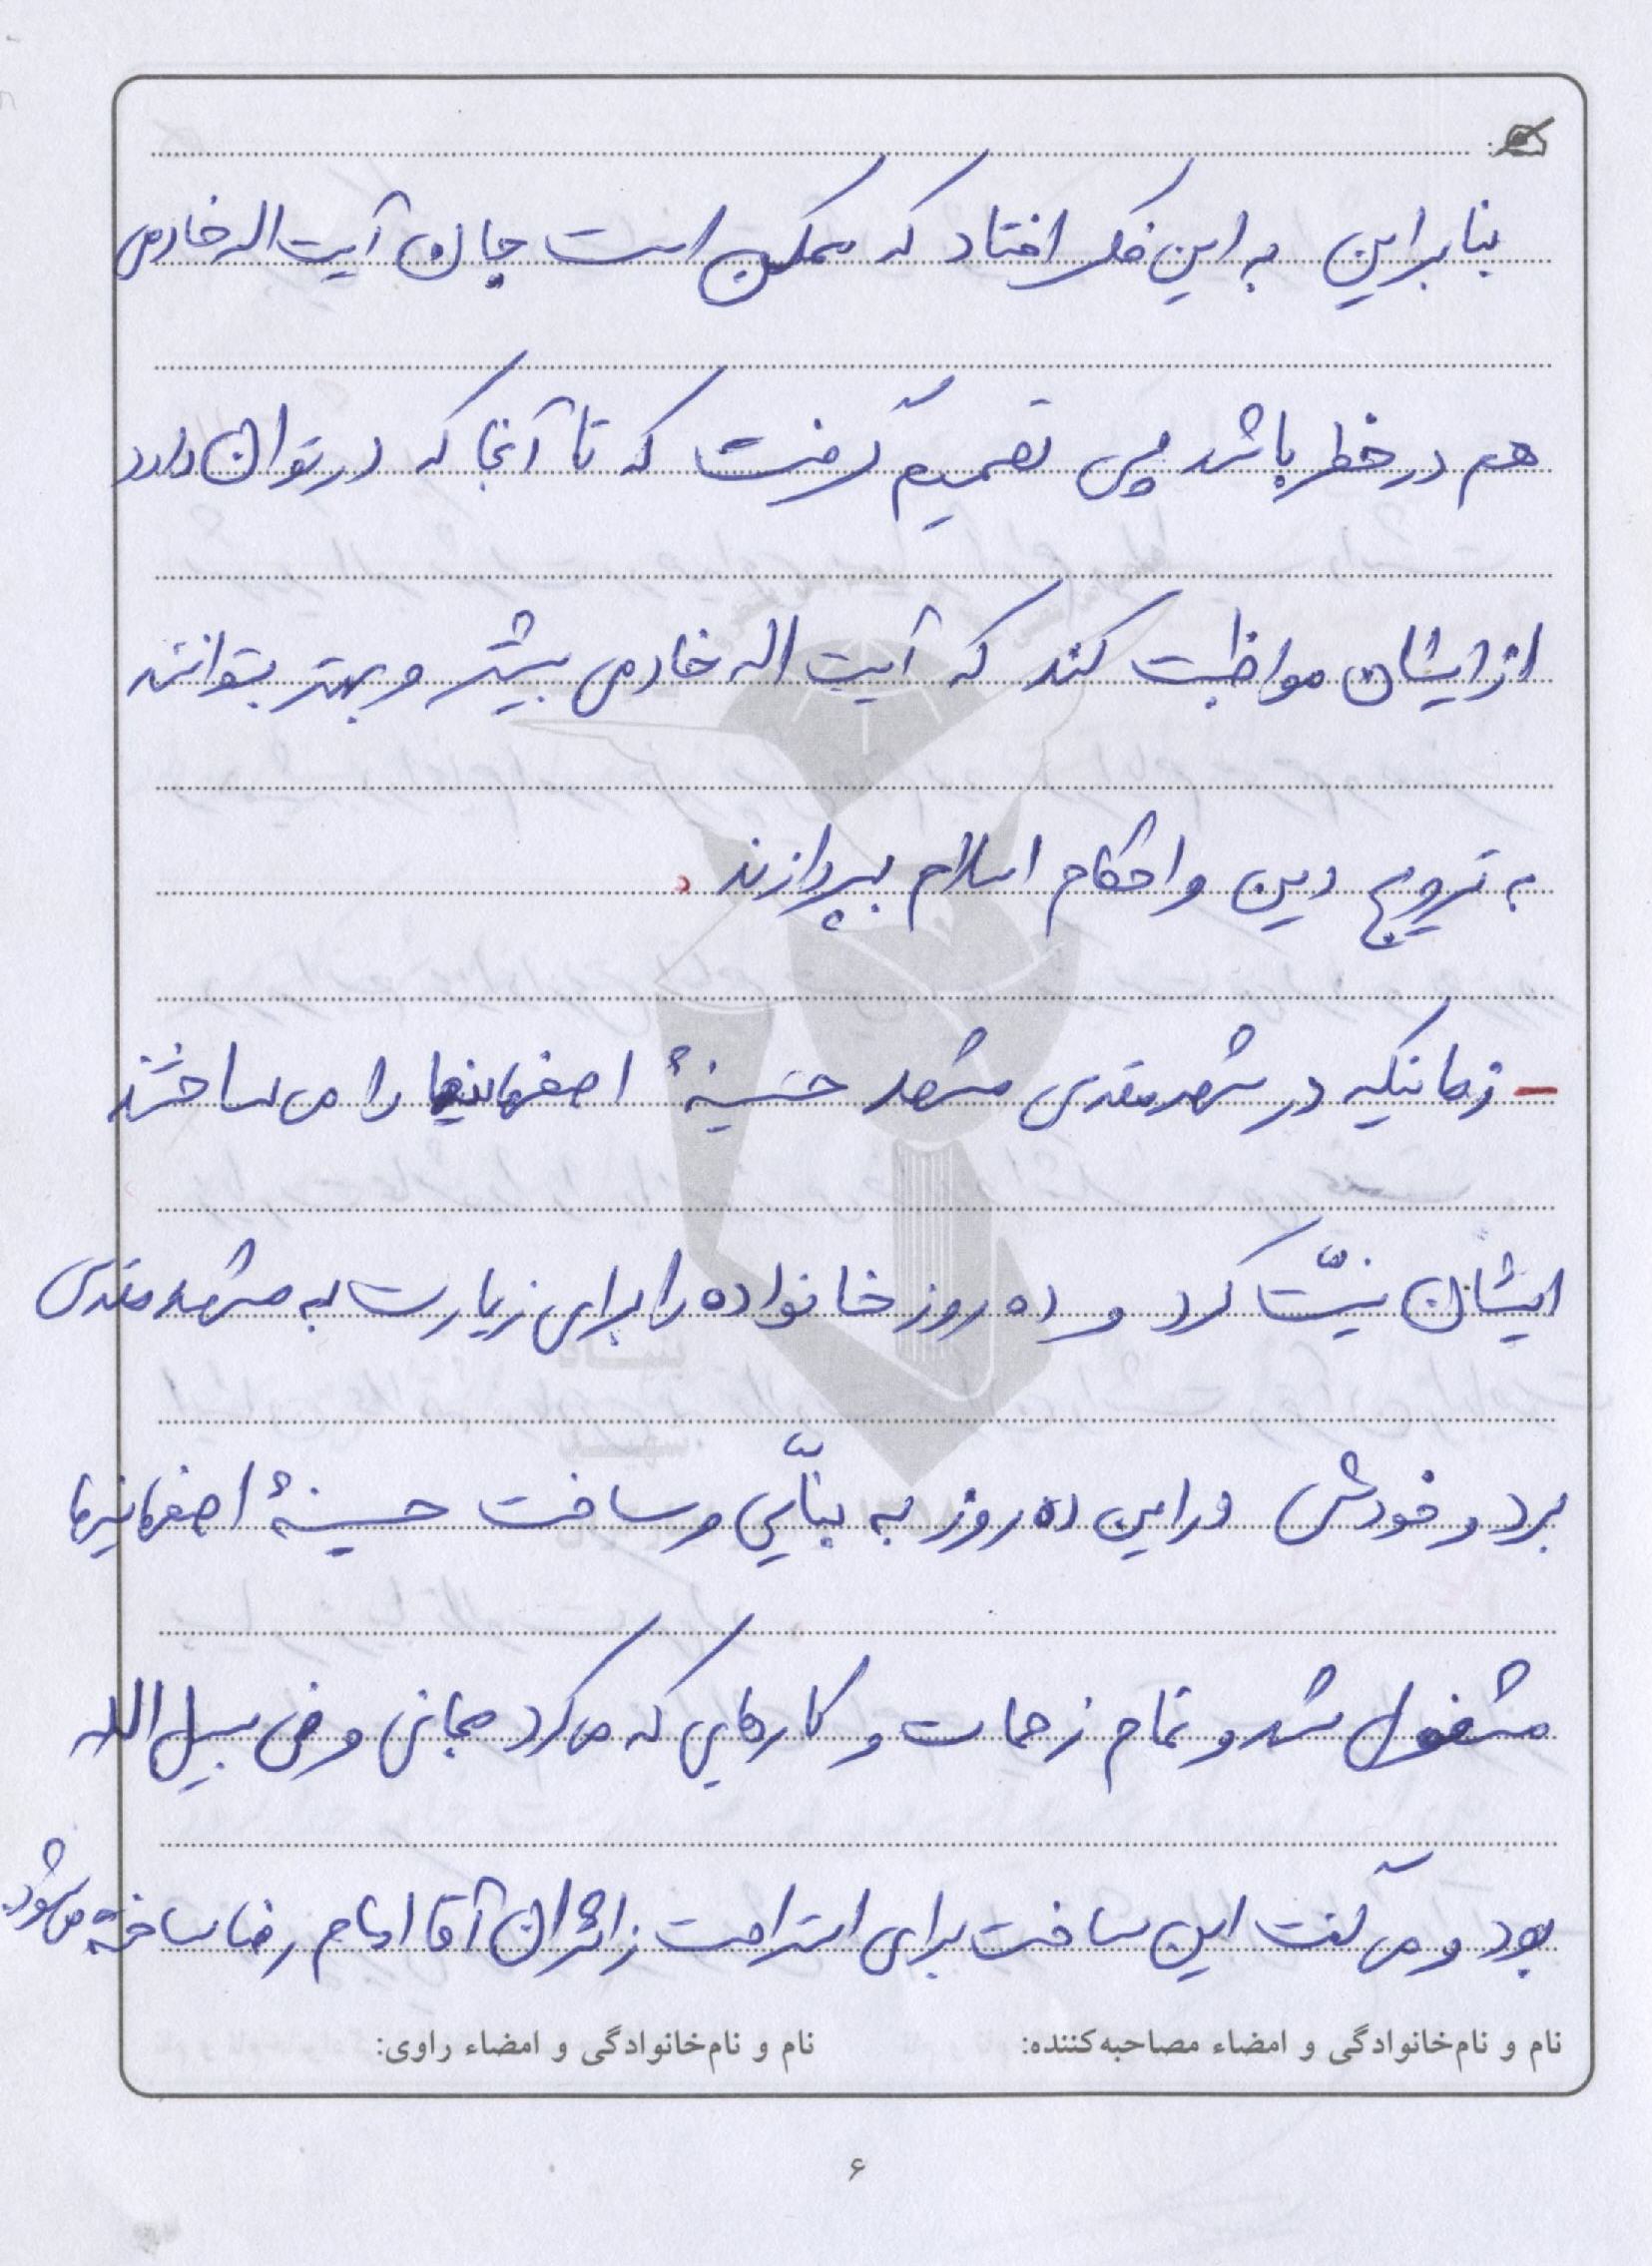 بنابراین به این فکر افتاد که ممکن است جان آیت اله خادمی
هم در خطر باشد پس تصمیم گرفت که تا آنجا که در توان دارد
از ایشان مواظبت کند که آیت اله خادمی بیشتر و بهتر بتوانند
به ترویج دین و احکام اسلام بپردازند.
- زمانیکه در شهر مقدس مشهد حسینیۀ اصفهانیها را می ساختند
ایشان نیّت کرد و ده روز خانواده را برای زیارت به مشهد مقدس
برد و خودش در این ده روز به بنّایی و ساخت حسینیۀ اصفهانیها
مشغول شد و تمام زحمات و کارهایی که می کرد مجانی و فی سبیل الله
بود و می گفت این ساخت برای استراحت زائران آقا امام رضا ساخته می شود.
نام و نام‌خانوادگی و امضاء مصاحبه‌کننده: نام و نام‌خانوادگی و امضاء راوی:
۶